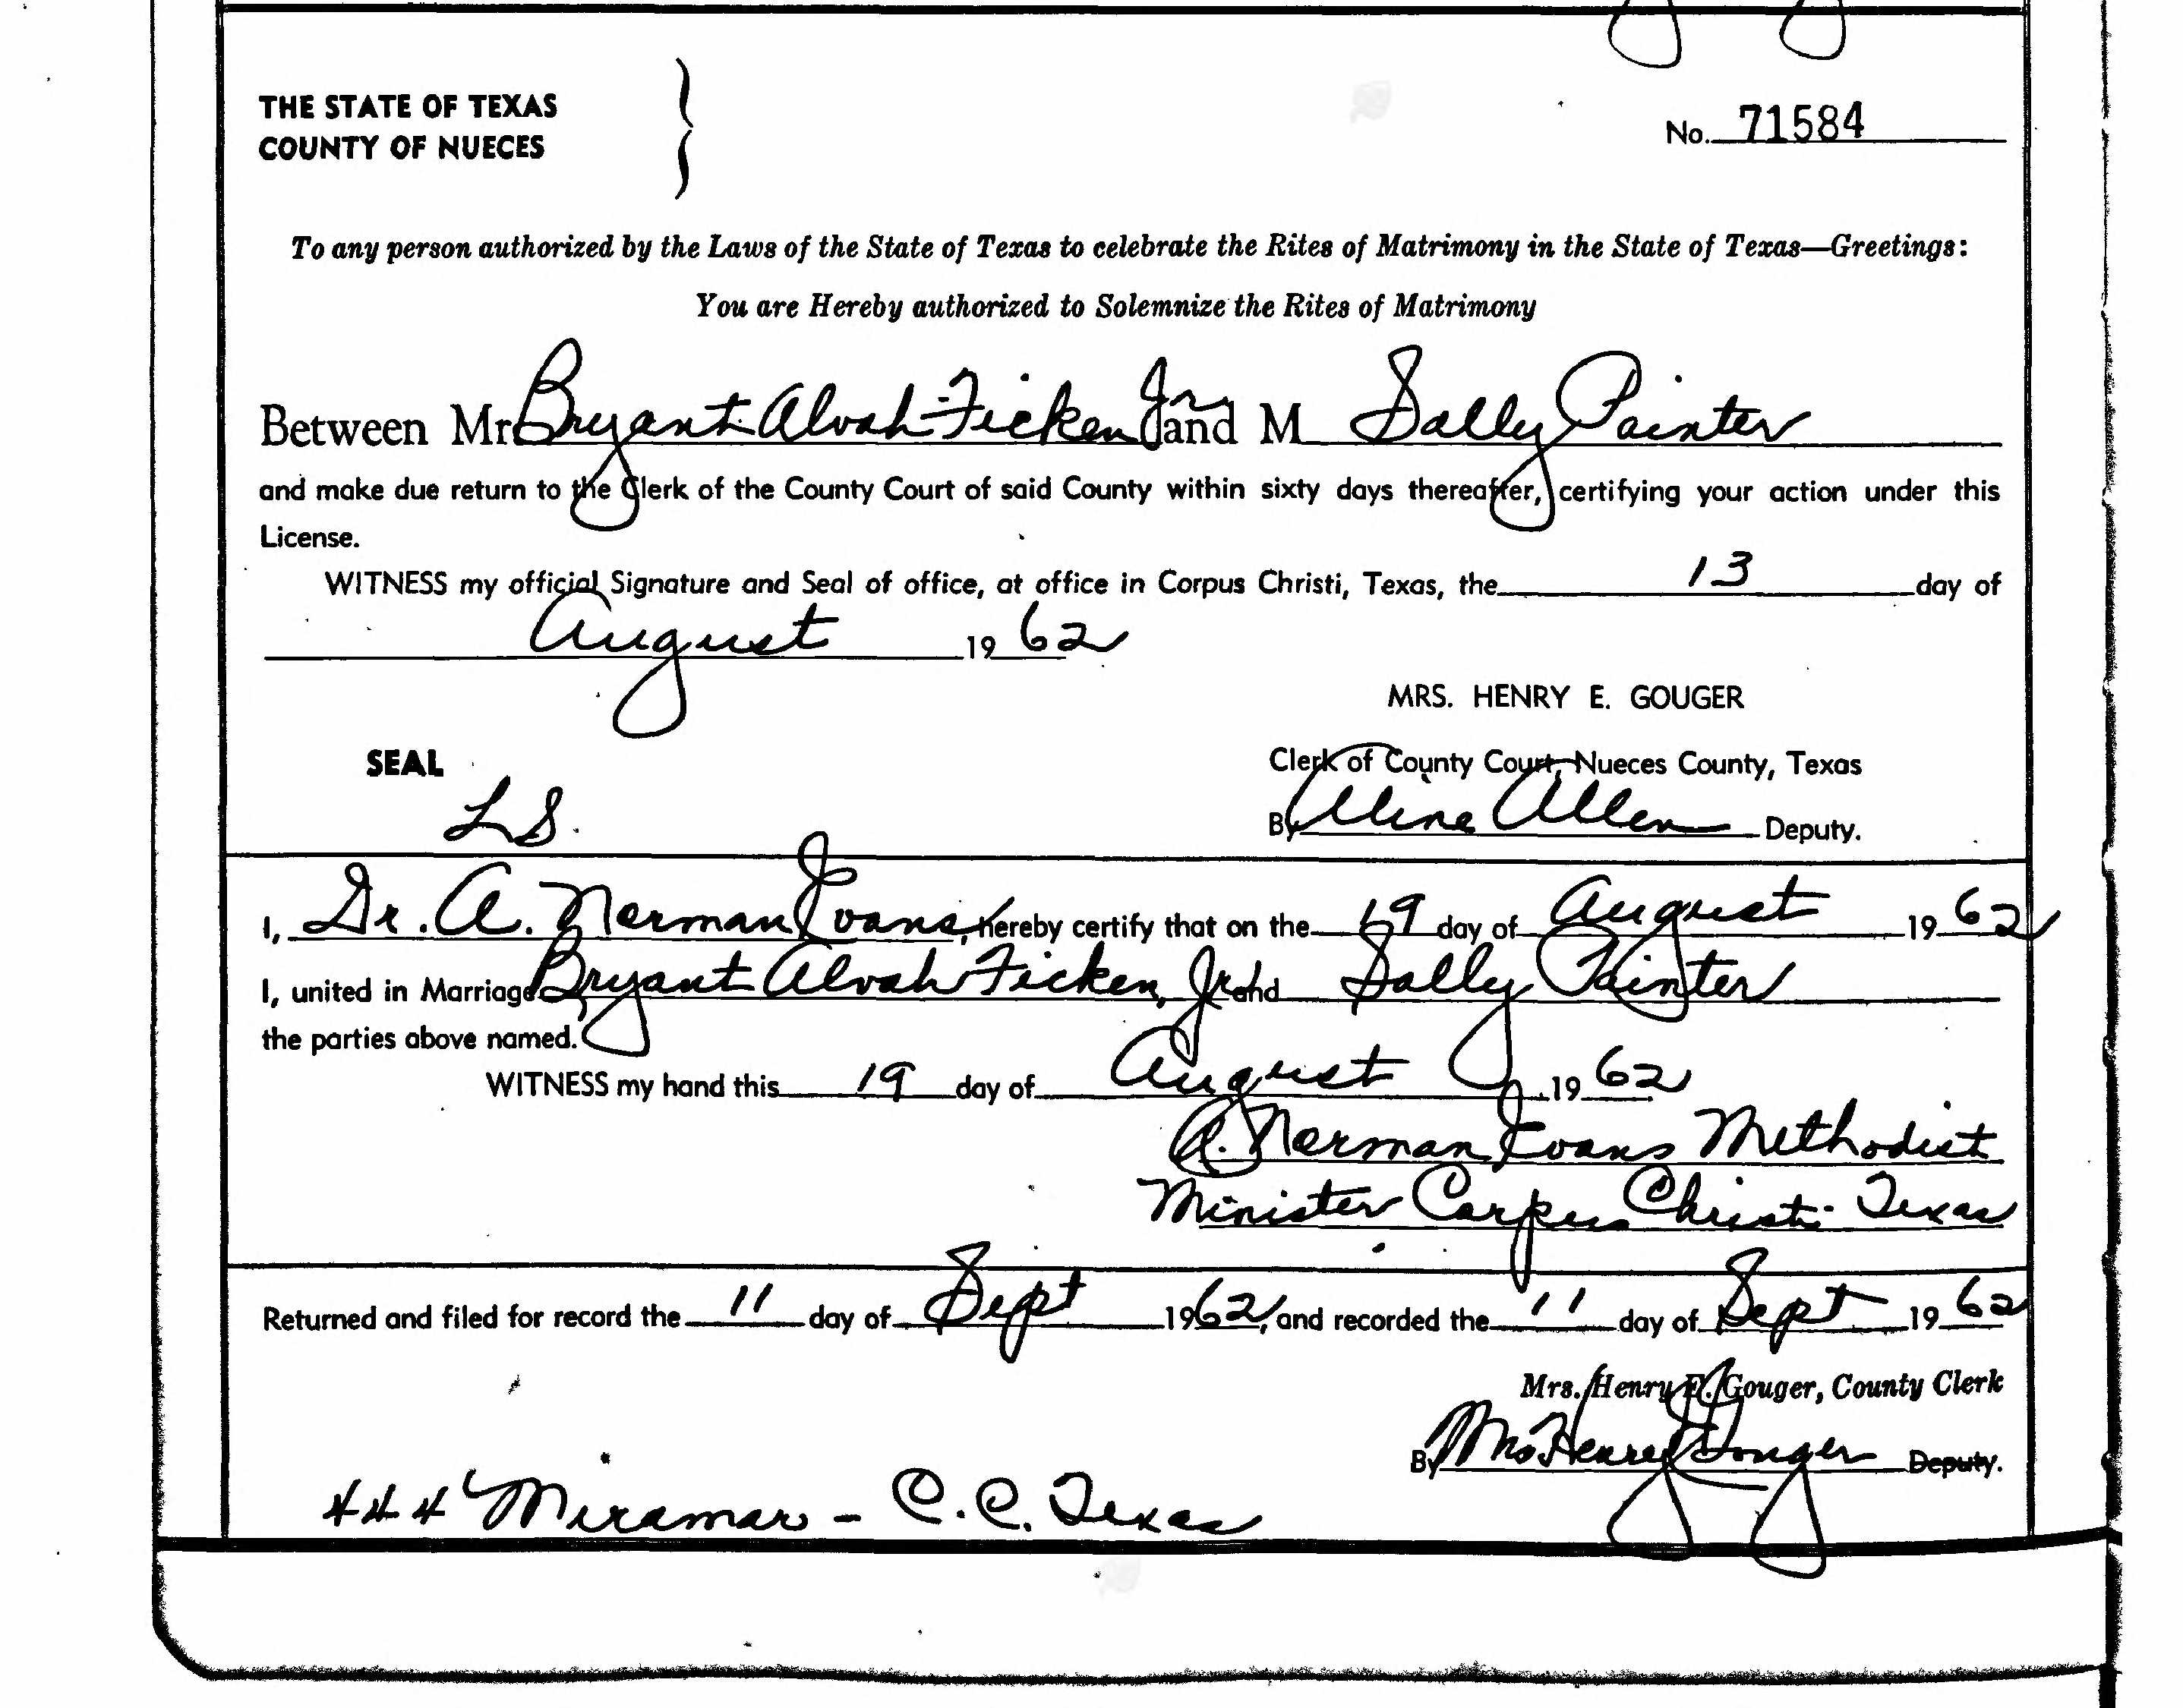 THE STATE OF TEXAS
COUNTY OF NUECES
No. 71584
To any person authorized by the Laws of the State of Texas to celebrate the Rites of Matrimony in the State of Texas—Greetings:
You are Hereby authorized to Solemnize the Rites of Matrimony
Between Mr Bryant Alvah Ficken Jr and M Sally Painter
and make due return to the Clerk of the County Court of said County within sixty days thereafter, certifying your action under this
License.
WITNESS my official Signature and Seal of office, at office in Corpus Christi, Texas, the 13 day of
August 19 62
MRS. HENRY E. GOUGER
SEAL
Clerk of County Court, Nueces County, Texas
L S.
By Aline Allen Deputy.
I, Dr. A. Norman Evans, hereby certify that on the 19 day of August 19 62
I, united in Marriage Bryant Alvah Ficken, Jr and Sally Painter
the parties above named.
WITNESS my hand this 19 day of August 19 62
A. Norman Evans Methodist
Minister Corpus Christi Texas
Returned and filed for record the 11 day of Sept 1962, and recorded the 11 day of Sept 19 62
Mrs. Henry E. Gouger, County Clerk
By Mrs Henry E Gouger Deputy.
444 Miramar - C.C. Texas